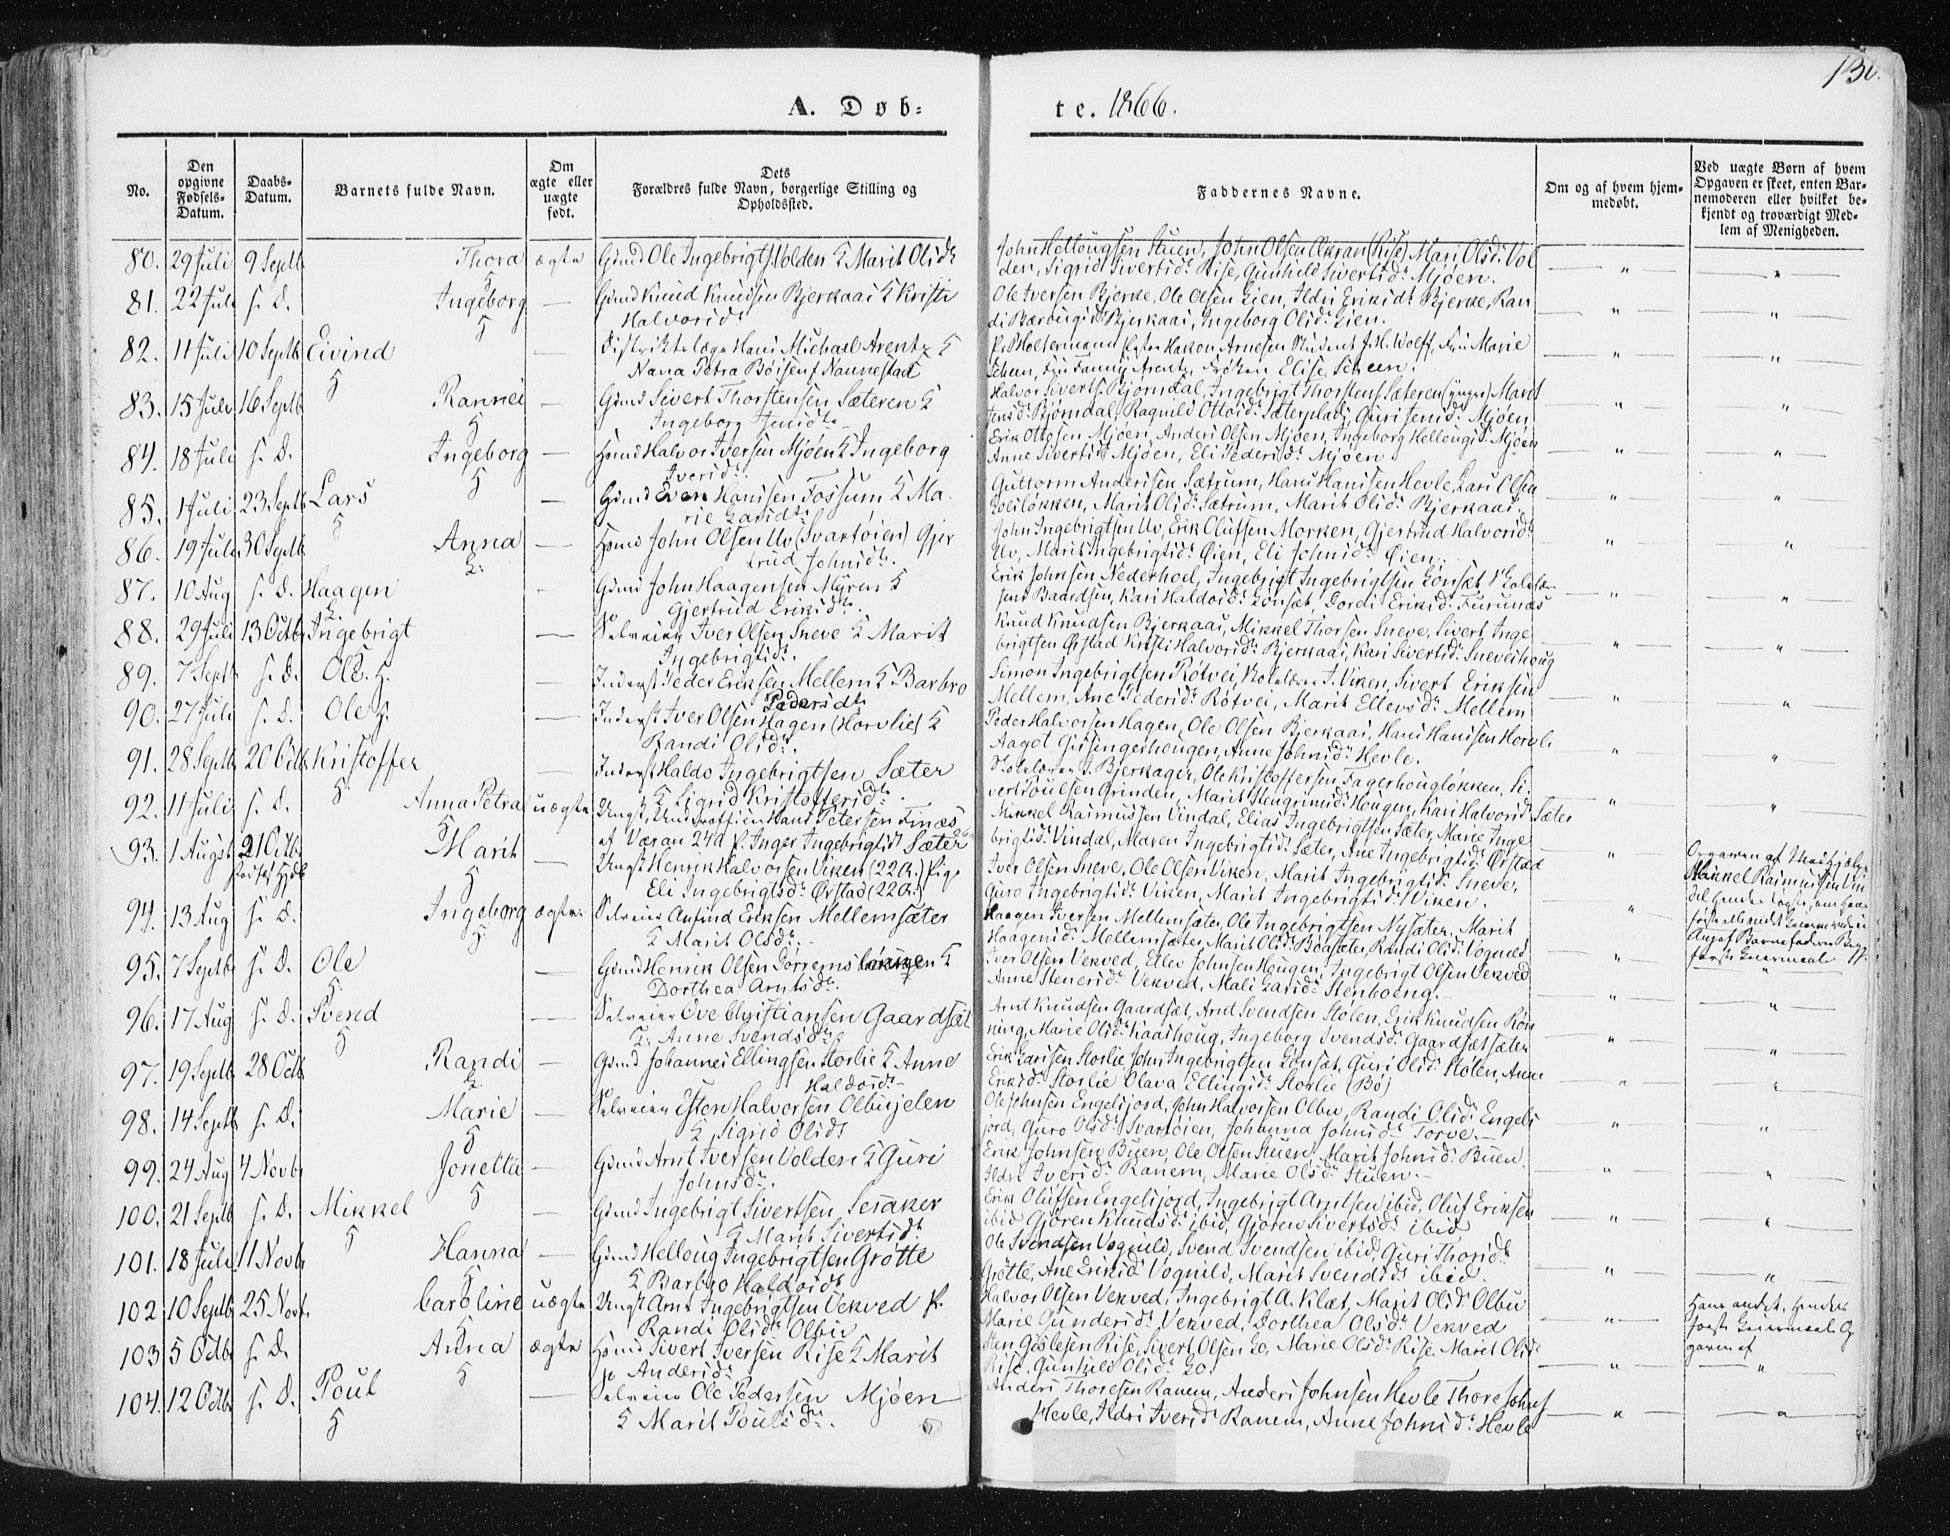 130.
A. Døb=
te. 1866.
No.
Den opgivne Fødsels-Datum.
Daabs-Datum.
Barnets fulde Navn.
Om ægte eller uægte født.
Dets Forældres fulde Navn, borgerlige Stilling og Opholdssted.
Faddernes Navne.
Om og af hvem hjem-medøbt.
Ved uægte Børn af hvem Opgaven er skeet, enten Bar-nemoderen eller hvilket be-kjendt og troværdigt Med-lem af Menigheden.
80. 29 Juli 9 Septb Thora ægte Gmd Ole Ingebrigts. Volden & Marit Olsdr
John Olsen Aran (Rise) Mari Olsdr Vol
den, Sigrid Sivertsdr Rise, Gunhild Sivertsdr Mjøen.
81. 22 Juli s. D. Ingeborg — Gmd Knud Knudsen Bjerkaas & Kristi
Halvorsdr
Ole Iversen Bjerke, Ole Olsen Lien, Ildri Eriksdr Bjerke, Ran
di Bjerkaas, Ingeborg Olsdr Lien.
82. 11 Juli 10 Septb Eivind — Distriktslæge Hans Michael Arentz &
Nana Petra Boisen f. Nannestad
P. Holtermann Hakon Arnesen Student J. H. Wolff, Fru Marie
Scheen, Fru Fanny Arentz, Frøken Elise Scheen.
83. 15 Juli 16 Septb Rannei — Gmd Sivert Thorstensen Sæteren &
Ingeborg Jensdtr
Halvor Siverts. Bjørndal, Ingebrigt Thorstens. Sæteren (yngre) Marit
Jensdr Bjørndal, Ragnild Ottosdr Sæterplads, Guri Jensdr Mjøen
84. 18 Juli s. D. Ingeborg — Hmd Halvor Iversen Mjøen & Ingeborg
Iversdr
Erik Ottosen Mjøen, Anders Olsen Mjøen, Ingeborg Hellougsdr Mjøen
Anne Sivertsdr Mjøen, Eli Pedersdr Mjøen
85. 1 Juli 23 Septb Lars — Gmd Even Hansen Fossum & Ma-
rie Larsdtr
Guttorm Andersen Sætrum, Hans Hansen Hevle, Lars Olsen
Marit Olsdr Sætrum, Marit Olsdr Bjerkaas.
86. 19 Juli 30 Septb Anna — Hmd John Olsen Uv (Svartøien) Gjer
trud Johnsdtr.
John Ingebrigtsen Uv, Erik Olufsen Morken, Gjertrud Halvorsdr
Uv, Marit Ingebrigtsdr Øien, Eli Johnsdr Øien.
87. 10 Aug s. D. Haagen — Gmd John Haagensen Myren &
Gjertrud Eriksdtr.
Erik Johnsen Nederhoel, Ingebrigt Ingebrigtsen Lønset,
Baardsen, Kari Haldosdr Lønset, Dordi Eriksdr Furunæs
88. 29 Juli 13 Octbr Ingebrigt — Selveier Iver Olsen Sneve & Marit
Ingebrigtsdr.
Knud Knudsen Bjerkaas, Mikkel Thorsen Sneve, Sivert Inge
brigtsen Ørstad Kristi Halvorsdr Bjerkaas, Kari Sivertsdr Sneveshoug
89. 7 Septb s. D. Ole — Inderst Peder Eriksen Mellem & Barbro
Pedersdtr
Simon Ingebrigtsen Røtvei, Skolelærer J. Viken, Sivert Eriksen
Mellem, Ane Pedersdr Røtvei, Marit Ellevsdr Mellem
90. 27 Juli s. D. Ole — Inderst Iver Olsen Hagen (Horvlie) &
Randi Olsdr.
Peder Halvorsen Hagen, Ole Olsen Bjerkaas, Hans Hansen
Aagot Anne Johnsdr Hevle.
91. 28 Septb 20 Octb Kristoffer — Inderst Haldo Ingebrigtsen Sæter
& Sigrid Kristoffersdtr.
Skolelærer J. Bjerkager, Ole Kristoffersen Fagerhougløkken, Si-
vert Poulsen Grinden, Marit Stengrimsdr Hougen, Kari Halvorsdr Sæter
92. 11 Juli s. D. Anna Petra uægte Ungk. Underofficier Hans Petersen Finæs
af Væran 24 a P. Inger Ingebrigtsdr Sæter
Mikkel Rasmussen Vindal, Elias Ingebrigtsen Sæter, Marie Inge
brigtsdr Vindal, Maren Ingebrigtsdr Sæter, Ane Ingebrigtsdr Ørstad
93. 1 Augst 21 Octb Marit Ungk Henrik Halvorsen Viken (22 a.) Pige
Eli Ingebrigtsdr Ørstad (22 a.)
Iver Olsen Sneve, Ole Olsen Viken, Marit Ingebrigtsdr Sneve,
Guro Ingebrigtsdr Viken, Marit Ingebrigtsdr Viken.
Opgaven af
Mikkel Rasmussen Vin
dal
94. 13 Aug s. D. Ingeborg ægte Selveier Anfind Eriksen Mellemsæter
& Marit Olsdr.
Haagen Iversen Mellemsæter, Ole Ingebrigtsen Nysæter, Marit
Haagensdr Mellemsæter, Marit Olsdr Boasæter, Randi Olsdr Vognild
95. 7 Septb s. D. Ole — Gmd Henrik Olsen Dørremsløkken &
Dorthea Arntsdr.
Iver Olsen Vekved, Ellev Johnsen Hougen, Ingebrigt Olsen Vekved
Anne Stenersdr Vekved, Mali Larsdr Stenboeng.
96. 17 Aug s. D. Svend — Selveier Ove Christiansen Gaardsæt
& Anne Svendsdtr
Arnt Knudsen Gaardsæt, Arnt Svendsen Stølen, Erik Knudsen Røn
ning, Marie Olsdr Kaashoug, Ingeborg Svendsdr Gaardsætsæter
97. 19 Septb 28 Octb Randi — Gmd Johannes Ellingsen Storlie & Anne
Haldosdr
Erik Larsen Storlie John Ingebrigtsen Lønset, Guri Olsdr Stølen, Anne
Eriksdr Storlie Olava Ellingsdr Storlie (Bø)
98. 14 Septb s. D. Marie — Selveier Esten Halvorsen Olbusjelen
& Sigrid Olsdr
Ole Johnsen Engelsjord, John Halvorsen Olbu, Randi Olsdr Engels
jord, Guro Olsdr Svartøien, Johanna Johnsdr Torve.
99. 24 Aug 4 Novb Jonetta — Gmd Arnt Iversen Volden & Guri
Johnsdr.
Erik Johnsen Buen, Ole Olsen Stuen, Marit Johnsdr Buen.
Ildri Iversdr Ranem, Marie Olsdr Stuen.
100. 21 Septb s. D. Mikkel — Gmd Ingebrigt Sivertsen Sesaker
& Marit Sivertsdr
Erik Olufsen Engelsjord, Ingebrigt Arntsen ibid, Oluf Eriksen
ibid Gjøren Knudsdr ibid, Gjøren Sivertsdr ibid
101. 18 Juli 11 Novb Hanna — Gmd Helloug Ingebrigtsen Grøtte
& Barbro Haldosdr
Ole Svendsen Vognild, Svend Svendsen ibid, Guri Thorsdr
Grøtte, Ane Eriksdr Vognild, Marit Svendsdr ibid.
102 10 Septb 25 Novb Caroline uægte Ungk Arnt Ingebrigtsen Vekved P.
Randi Olsdr Olbu
Halvor Olsen Vekved, Ingebrigt A. Klæt, Marit Olsdr Olbu
Marie Gundersdr Vekved, Dorthea Olsdr Vekved
Hans andet, Hendes
første Leiermaal. Op
gaven af
103 5 Octb s. D. Anna ægte Hmd Sivert Iversen Rise & Marit
Andersdr
Sten Gislesen Rise, Sivert Olsen Lo, Marie Olsdr Rise, Marit Olsdr
Rise, Gunhild Olsdr Lo.
104. 12 Octb s. D. Poul — Selveier Ole Pedersen Mjøen
& Marit Poulsdr.
Anders Thoresen Ranem, Anders Johnsen Hevle Thore Johns
Hevle, Ildri Iversdr Ranem, Anne Johnsdr Hevle